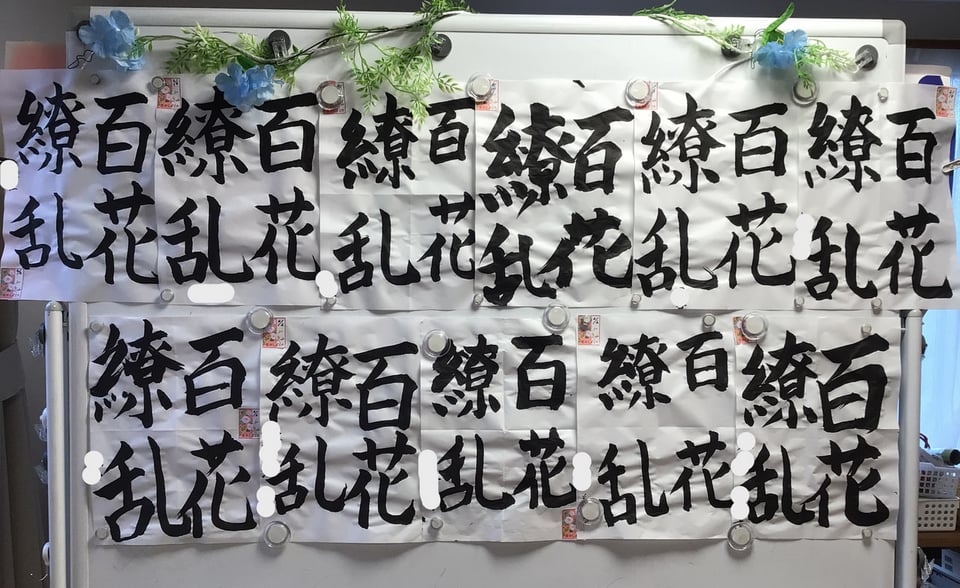 百花
繚乱
百花
繚乱
百花
繚乱
百花
繚乱
百花
繚乱
百花
繚乱
百花
繚乱
百花
繚乱
百花
繚乱
百花
繚乱
百花
繚乱